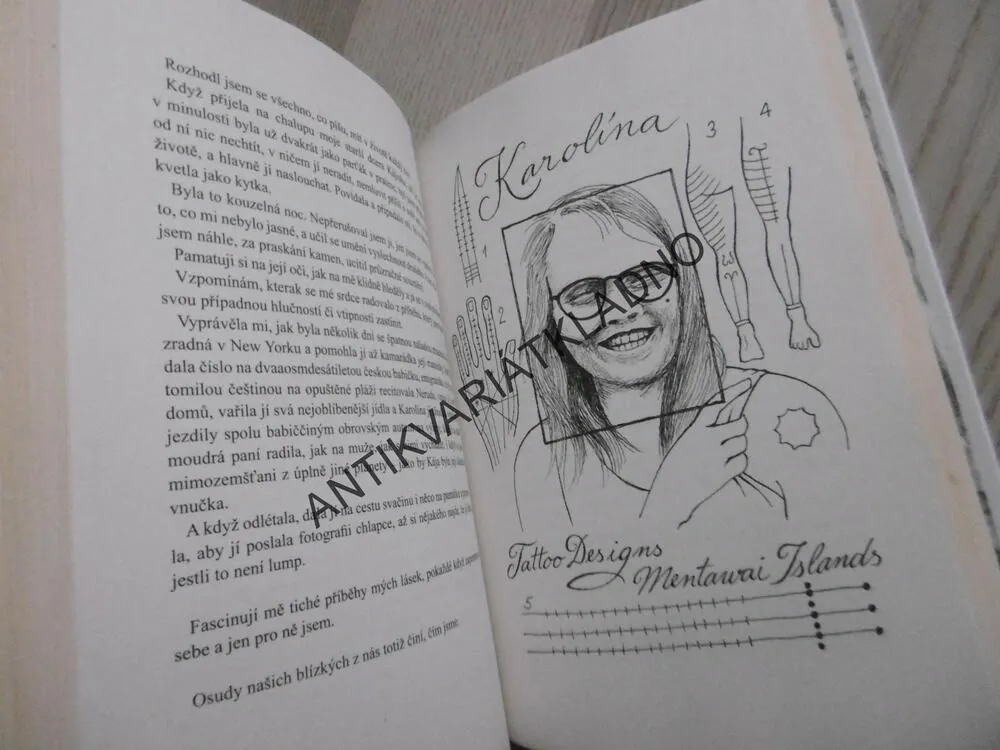 Rozhodl jsem se všechno, co píšu, mít v životě
Když přijela na chalupu moje starší dcera
v minulosti byla už dvakrát jako parťák v
od ní nic nechtít, v ničem jí neradit,
životě, a hlavně jí naslouchat. Povídala a připadalo mi,
kvetla jako kytka.
Byla to kouzelná noc. Nepřerušoval jsem ji, jen jsem
to, co mi nebylo jasné, a učil se umění vyslechnout
jsem náhle, za praskání kamen, ucítil průzračné
Pamatuji si na její oči, jak na mě klidně hleděly a
Vzpomínám, kterak se mé srdce radovalo z příběhu,
svou případnou hlučností či vtipností zastínit.
Vyprávěla mi, jak byla několik dní se špatnou náladou,
zradná v New Yorku a pomohla jí až kamarádka její
dala číslo na dvaaosmdesátiletou českou babičku,
tomilou češtinou na opuštěné pláži recitovala Nerudu,
domů, vařila jí svá nejoblíbenější jídla a Karolína
jezdily spolu babiččiným obrovským
moudrá paní radila, jak na muže,
mimozemšťani z úplně jiné planety – jako by Kája byla
vnučka.
A když odlétala, dala jí na cestu svačinu i něco na památku
la, aby jí poslala fotografii chlapce, až si nějakého najde,
jestli to není lump.
Fascinují mě tiché příběhy mých lásek, pokaždé když
sebe a jen pro ně jsem.
Osudy našich blízkých z nás totiž činí, čím jsme.
Karolína
1
2
3
4
Tattoo Designs
Mentawai Islands
5
ANTIKVARIÁTKLADNO